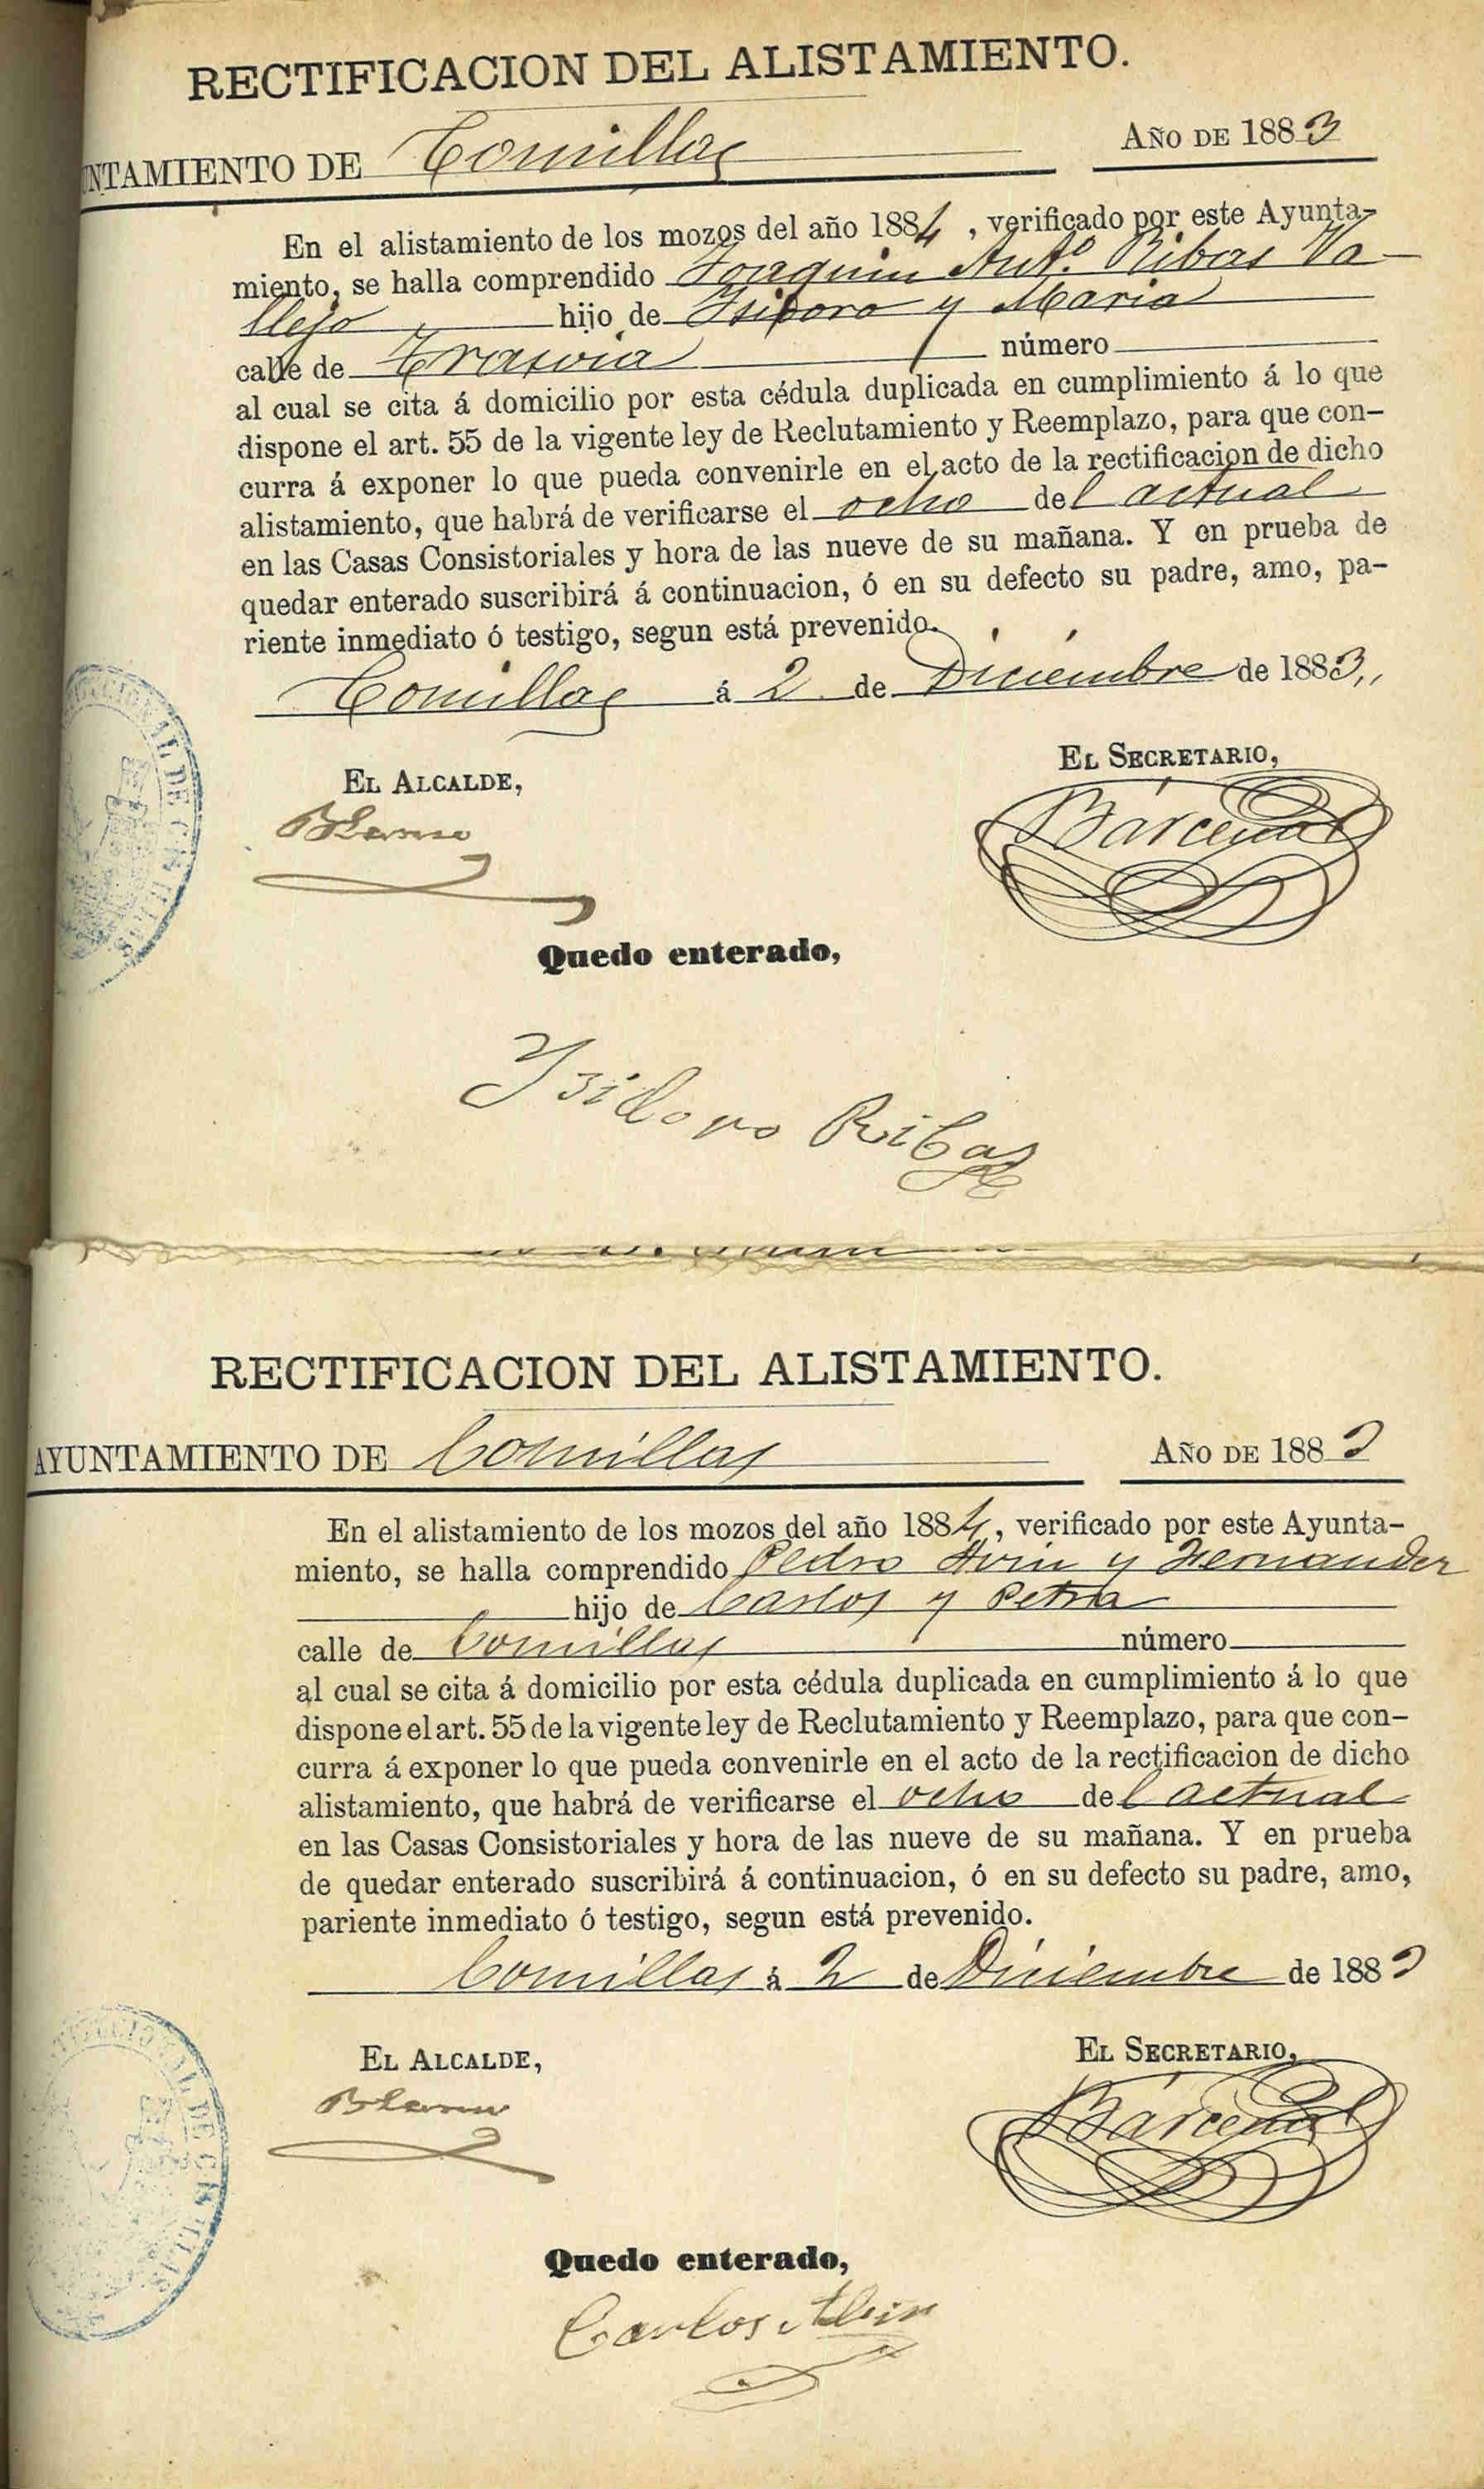 RECTIFICACION DEL ALISTAMIENTO.
UNTAMIENTO DE Comillas AÑO DE 1883
En el alistamiento de los mozos del año 1884, verificado por este Ayunta-
miento, se halla comprendido Joaquin Antº. Ribas Va-
llejo hijo de Isidoro y Maria
calle de Trasvia número
al cual se cita á domicilio por esta cédula duplicada en cumplimiento á lo que
dispone el art. 55 de la vigente ley de Reclutamiento y Reemplazo, para que con-
curra á exponer lo que pueda convenirle en el acto de la rectificacion de dicho
alistamiento, que habrá de verificarse el ocho del actual
en las Casas Consistoriales y hora de las nueve de su mañana. Y en prueba de
quedar enterado suscribirá á continuacion, ó en su defecto su padre, amo, pa-
riente inmediato ó testigo, segun está prevenido.
Comillas á 2 de Diciembre de 1883,,
EL ALCALDE, EL SECRETARIO,
Bárcenas
Quedo enterado,
Ysidoro Ribas
RECTIFICACION DEL ALISTAMIENTO.
AYUNTAMIENTO DE Comillas AÑO DE 1883
En el alistamiento de los mozos del año 1884, verificado por este Ayunta-
miento, se halla comprendido Pedro y Fernandez
hijo de Carlos y Petra
calle de Comillas número
al cual se cita á domicilio por esta cédula duplicada en cumplimiento á lo que
dispone el art. 55 de la vigente ley de Reclutamiento y Reemplazo, para que con-
curra á exponer lo que pueda convenirle en el acto de la rectificacion de dicho
alistamiento, que habrá de verificarse el ocho del actual
en las Casas Consistoriales y hora de las nueve de su mañana. Y en prueba
de quedar enterado suscribirá á continuacion, ó en su defecto su padre, amo,
pariente inmediato ó testigo, segun está prevenido.
Comillas á 2 de Diciembre de 1883
EL ALCALDE, EL SECRETARIO,
Bárcenas
Quedo enterado,
Carlos